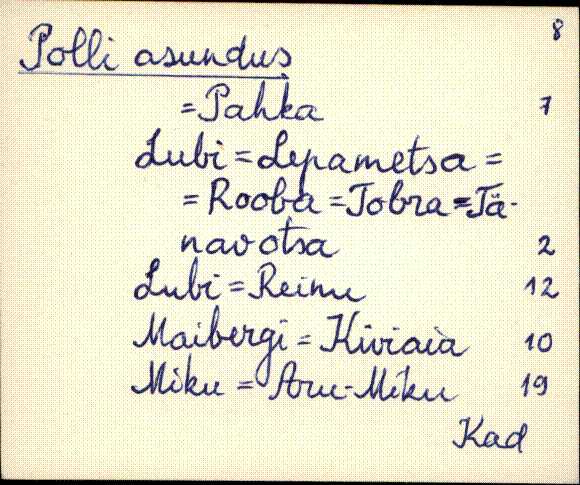 8
Polli asundus
=Pahka 7
Lubi = Lepametsa =
= Rooba = Tobra = Tä-
navotsa 2
Lubi = Reinu 12
Maibergi = Kiviaia 10
Miku = Aru-Miku 19
Kad